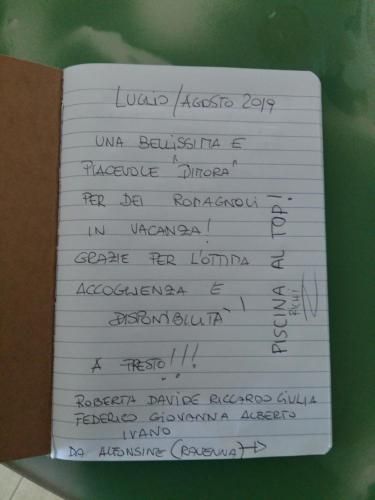 LUGLIO/AGOSTO 2019
UNA BELLISSIMA E
PIACEVOLE "DIMORA"
PER DEI ROMAGNOLI
IN VACANZA!
GRAZIE PER L'OTTIMA
ACCOGLIENZA E
DISPONIBILITÀ!
A PRESTO!!!
ROBERTA DAVIDE RICCARDO GIULIA
FEDERICO GIOVANNA ALBERTO
IVANO
DA ALFONSINE (RAVENNA)
PISCINA AL TOP!